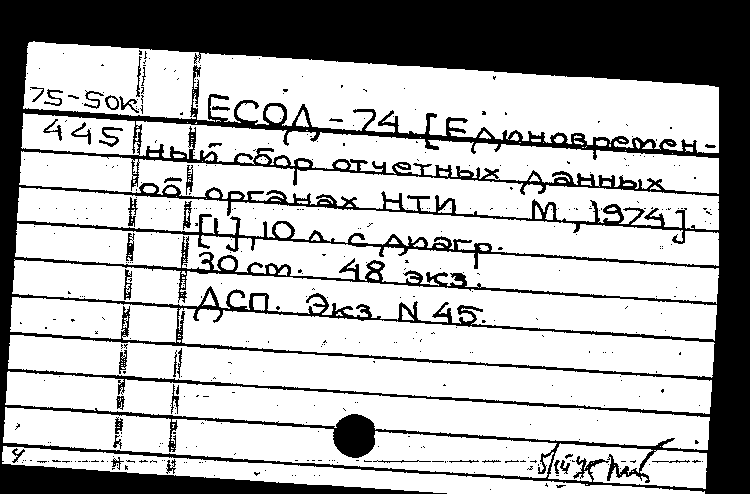 75-50к ЕСОД - 74. [Единовремен-
445 ный сбор отчетных данных
об органах НТИ. М., 1974].
[1], 10 л. с диагр.
30 cm. 48 экз.
ДСП. Экз. N 45.